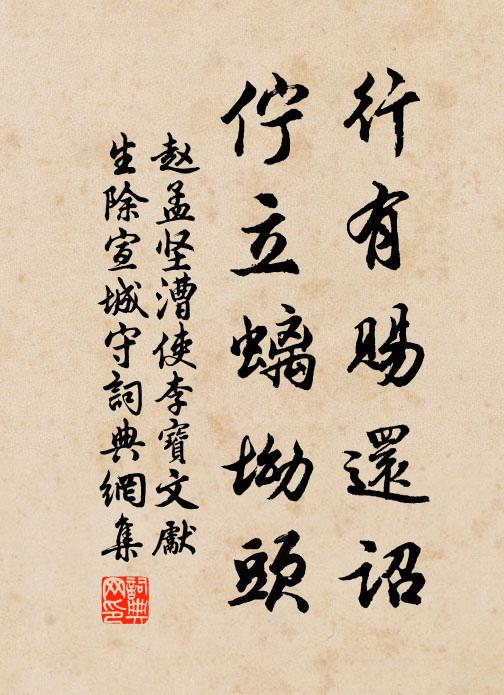 行有赐還詔
佇立螭坳頭
赵孟坚漕使李寶文獻
生除宣城守詞典網集
詞典网印